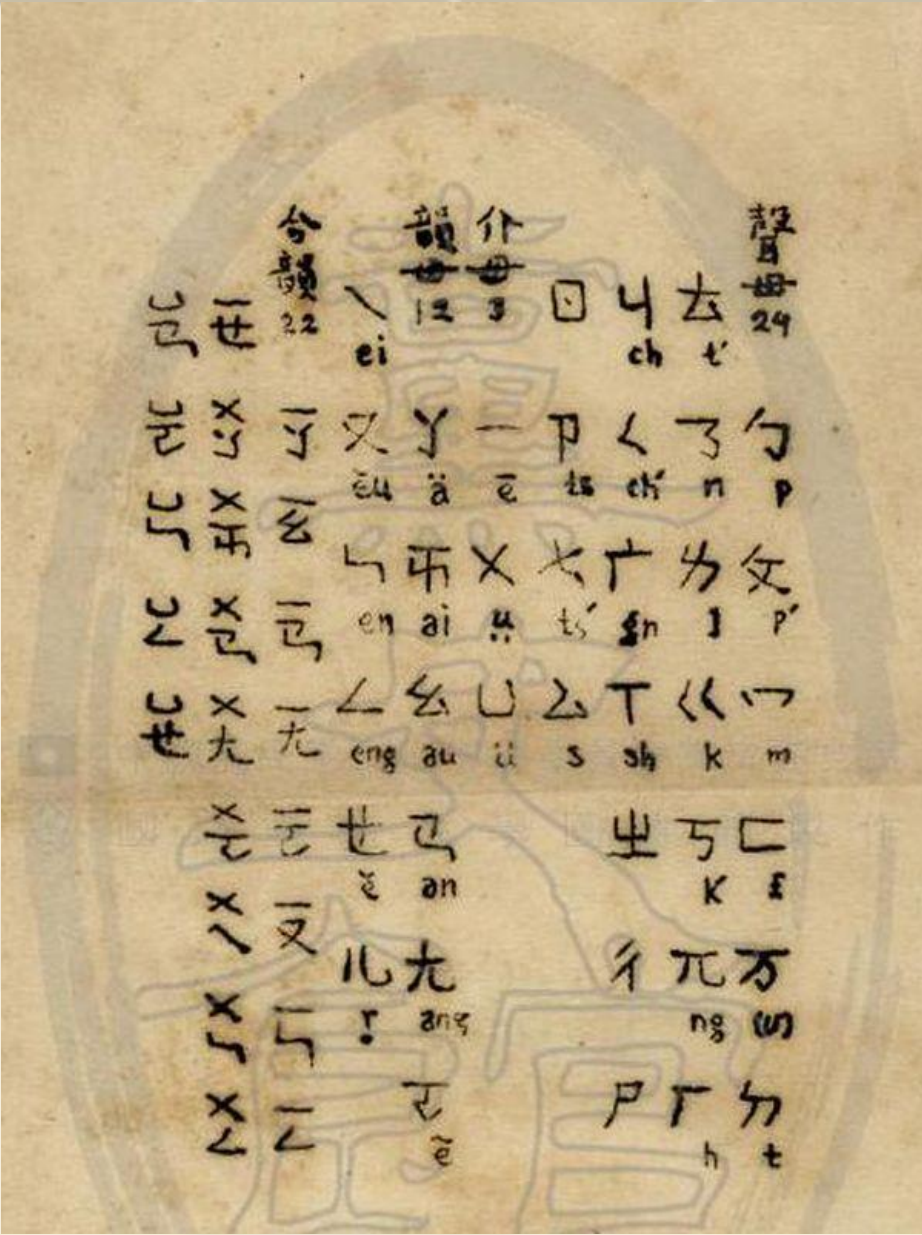 聲母24 ㄅ p ㄆ p' ㄇ m ㄈ f ㄪ ㄉ t
ㄊ t' ㄋ n ㄌ l ㄍ k ㄎ K ㄫ ng ㄏ h
ㄐ ch ㄑ ch' ㄬ gn ㄒ sh ㄓ ㄔ ㄕ
ㄖ ㄗ ts ㄘ ts' ㄙ s
介母3 ㄧ ē ㄨ ṳ ㄩ ü
韻母12 ㄚ ä ㄞ ai ㄠ au ㄢ an ㄤ ang ㄛ ē
ㄟ ei ㄡ ĕu ㄣ en ㄥ eng ㄝ ĕ ㄦ ṛ
合韻22 ㄧㄚ ㄧㄠ ㄧㄢ ㄧㄤ ㄧㄛ ㄧㄡ ㄧㄣ ㄧㄥ
ㄧㄝ ㄨㄚ ㄨㄞ ㄨㄢ ㄨㄤ ㄨㄛ ㄨㄟ ㄨㄣ ㄨㄥ
ㄩㄢ ㄩㄛ ㄩㄣ ㄩㄥ ㄩㄝ